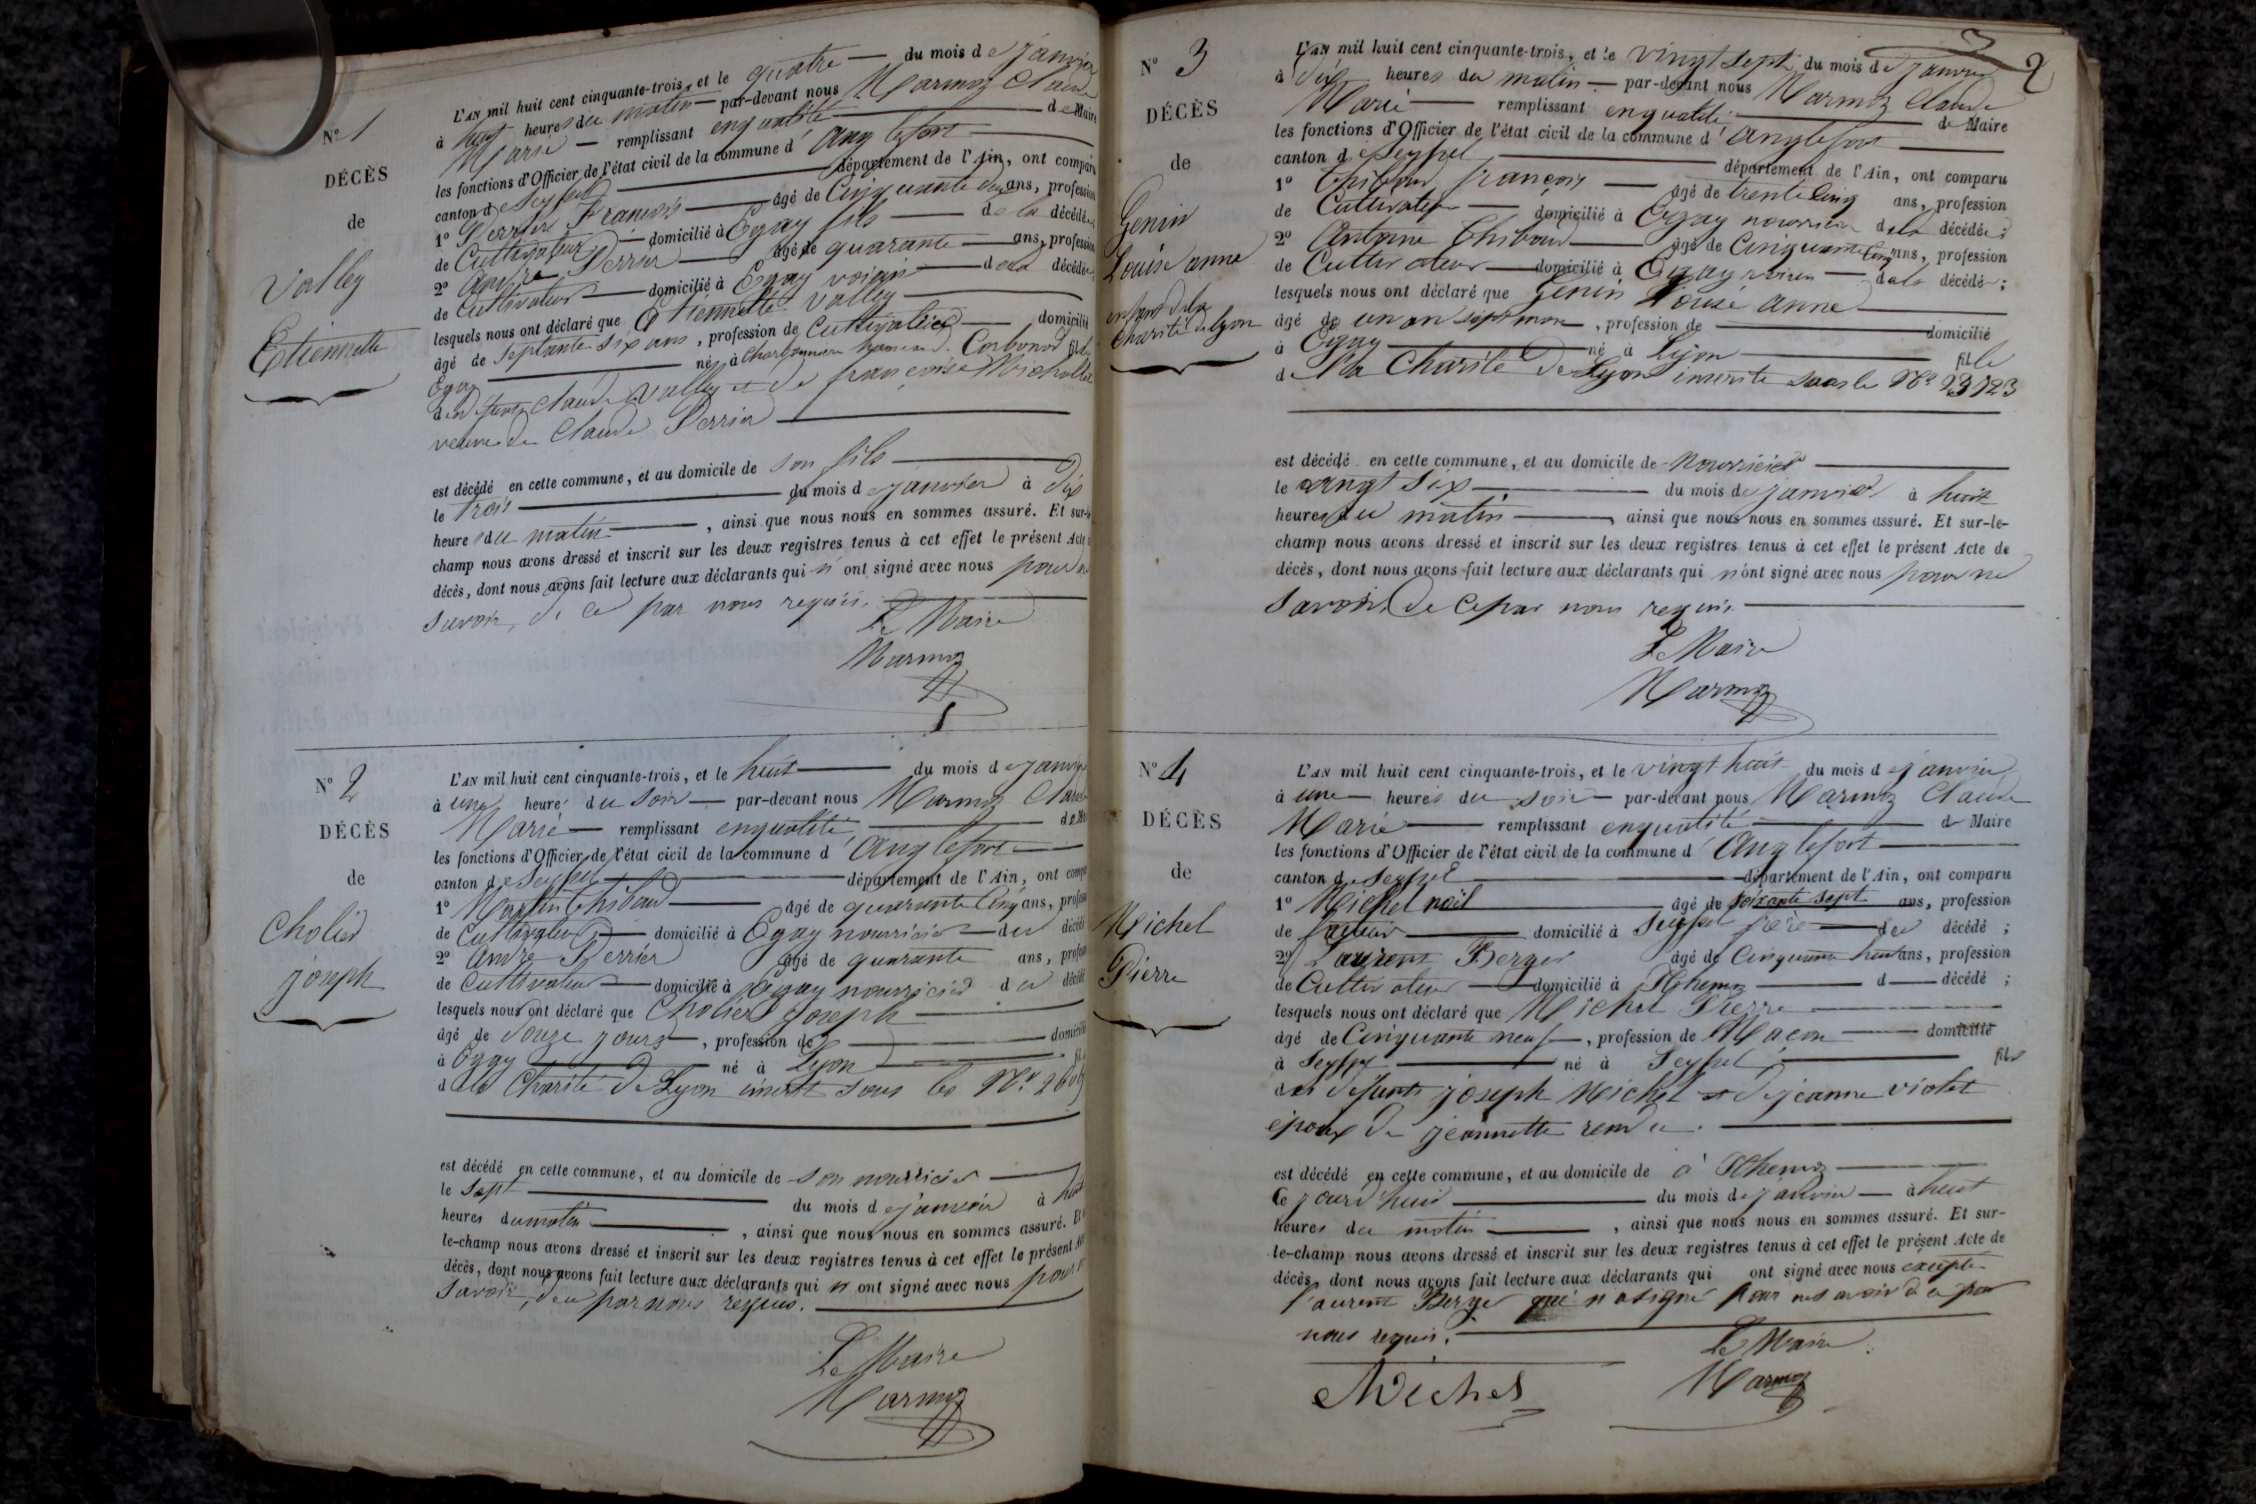 N° 1
DÉCÈS
de
Valley
Etiennette
L'AN mil huit cent cinquante-trois, et le quatre du mois de janvier
à huit heures du matin par-devant nous Marmoz Claude
Marie remplissant en qualité de Maire
les fonctions d'Officier de l'état civil de la commune d'Anglefort
canton de Seyssel département de l'Ain, ont comparu
1° Perrier François âgé de Cinquante deux ans, profession
de Cultivateur domicilié à Ogay fils de la décédée
2° André Perrier âgé de quarante ans, profession
de Cultivateur domicilié à Ogay voisin de la décédée
lesquels nous ont déclaré que Etiennette Valley
âgé de Septante six ans, profession de Cultivatrice domicilié
Ogay née à Charbonnière hameau de Corbonod fille
de feu Claude Valley et de françoise Michollet
veuve de Claude Perrier
est décédé en cette commune, et au domicile de son fils
le trois du mois de janvier à dix
heures du matin, ainsi que nous nous en sommes assuré. Et sur-le-
champ nous avons dressé et inscrit sur les deux registres tenus à cet effet le présent Acte
décès, dont nous avons fait lecture aux déclarants qui n'ont signé avec nous pour ne
savoir, de ce par nous requis.
Le Maire
Marmoz
N° 2
DÉCÈS
de
Cholier
joseph
L'AN mil huit cent cinquante-trois, et le huit du mois de janvier
à une heure du soir par-devant nous Marmoz Claude
Marie remplissant en qualité de Maire
les fonctions d'Officier de l'état civil de la commune d'Anglefort
canton de Seyssel département de l'Ain, ont comparu
1° Martin Thibaud âgé de quarante cinq ans, profession
de Cultivateur domicilié à Ogay nourricier du décédé
2° André Perrier âgé de quarante ans, profession
de Cultivateur domicilié à Ogay nourricier du décédé
lesquels nous ont déclaré que Cholier joseph
âgé de Douze jours, profession de domicilié
à Ogay né à Lyon fils
de la Charité de Lyon inscrit sous le N°
est décédé en cette commune, et au domicile de son nourricier
le Sept du mois de janvier à huit
heures du matin, ainsi que nous nous en sommes assuré. Et
le-champ nous avons dressé et inscrit sur les deux registres tenus à cet effet le présent
décès, dont nous avons fait lecture aux déclarants qui n'ont signé avec nous pour ne
Savoir, de ce par nous requis.
Le Maire
Marmoz
2
N° 3
DÉCÈS
de
Genin
Louise anne
enfant de la
Charité de Lyon
L'AN mil huit cent cinquante-trois, et le vingt sept du mois de janvier
à dix heures du matin par-devant nous Marmoz Claude
Marie remplissant en qualité de Maire
les fonctions d'Officier de l'état civil de la commune d'Anglefort
canton de Seyssel département de l'Ain, ont comparu
1° Thibaud françois âgé de trente cinq ans, profession
de Cultivateur domicilié à Ogay nourricier de la décédée;
2° Antoine Thibaud âgé de Cinquante cinq ans, profession
de Cultivateur domicilié à Ogay voisin de la décédée;
lesquels nous ont déclaré que Genin Louise anne
âgé de un an sept mois, profession de domicilié
à Ogay né à Lyon fille
de la Charité de Lyon inscrite sous le N° 23723
est décédé en cette commune, et au domicile de Nourricier
le vingt six du mois de janvier à huit
heures du matin, ainsi que nous nous en sommes assuré. Et sur-le-
champ nous avons dressé et inscrit sur les deux registres tenus à cet effet le présent Acte de
décès, dont nous avons fait lecture aux déclarants qui n'ont signé avec nous pour ne
Savoir, de ce par nous requis
Le Maire
Marmoz
N° 4
DÉCÈS
de
Michel
Pierre
L'AN mil huit cent cinquante-trois, et le vingt huit du mois de janvier
à une heures du soir par-devant nous Marmoz Claude
Marie remplissant en qualité de Maire
les fonctions d'Officier de l'état civil de la commune d'Anglefort
canton de Seyssel département de l'Ain, ont comparu
1° Michel noël âgé de soixante sept ans, profession
de domicilié à Seyssel frère du décédé;
2° Laurent Berger âgé de Cinquante huit ans, profession
de Cultivateur domicilié à d décédé;
lesquels nous ont déclaré que Michel Pierre
âgé de Cinquante neuf, profession de Maçon domicilié
à Seyssel né à Seyssel fils
des défunts joseph Michel et de jeanne violet
époux de jeannette
est décédé en cette commune, et au domicile de à
Ce jourd'hui du mois de janvier à huit
heures du matin, ainsi que nous nous en sommes assuré. Et sur-
le-champ nous avons dressé et inscrit sur les deux registres tenus à cet effet le présent Acte de
décès, dont nous avons fait lecture aux déclarants qui ont signé avec nous excepté
Laurent Berger qui n'a signé pour ne savoir de ce par
nous requis.
Le Maire
Michel
Marmoz